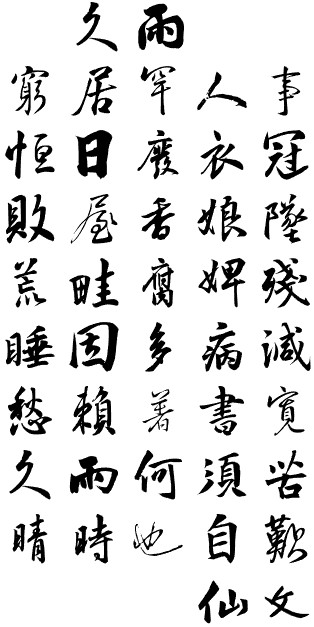 久雨
窮居罕人事
恒日廢衣冠
敗屋香娘墜
荒畦腐婢殘
睡因多病減
愁賴著書寬
久雨何須苦
晴時也自歎
仙文